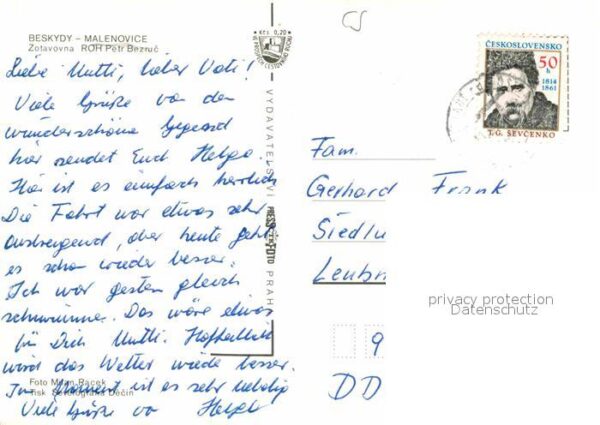 BESKYDY – MALENOVICE
Zotavovna ROH Petr Bezruč
Liebe Mutti, lieber Vati!
Viele Grüße von der
wunderschöne Gegend
hier sendet Euch Helga.
Hier ist es einfach herrlich
Die Fahrt war etwas sehr
anstrengend, aber heute geht
es schon wieder besser.
Ich war gestern gleich
schwimmen. Das wäre etwas
für Dich Mutti. Hoffentlich
wird das Wetter wieder besser.
Im Moment ist es sehr neblig
Viele Grüße von Helga
Foto Milan Racek
Tisk Severografia Děčín
Kčs 0,20
VYDAVATELSTVÍ PRESSFOTO PRAHA
ČESKOSLOVENSKO
50 h
1814
1861
T.G. ŠEVČENKO
Fam.
Gerhard Frank
Siedlu
Leubn
privacy protection
Datenschutz
9
DD